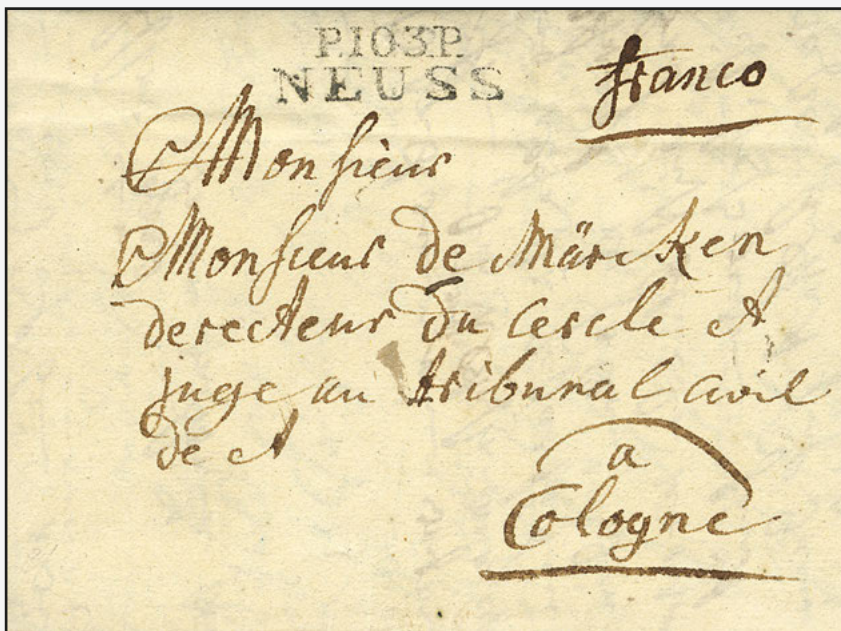 P.103.P.
NEUSS
franco
Monsieur
Monsieur de Märcken
derecteur du cercle et
juge au tribunal civil
de et
a
Cologne